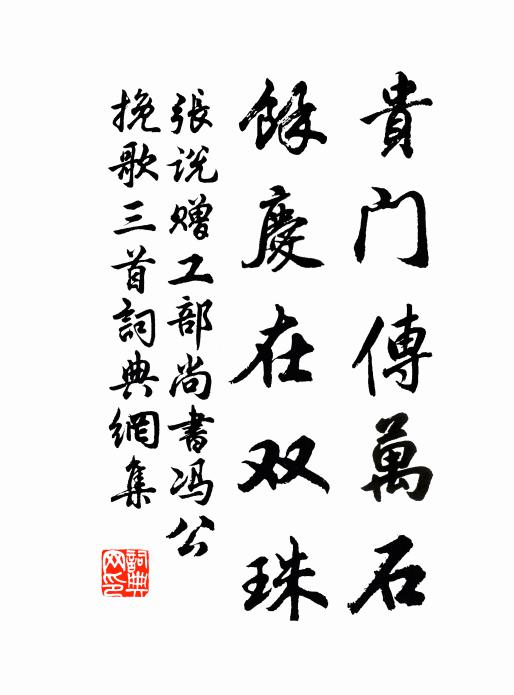 貴门傳萬石
餘慶在双珠
張说赠工部尚書冯公
挽歌三首詞典網集
詞典
网印